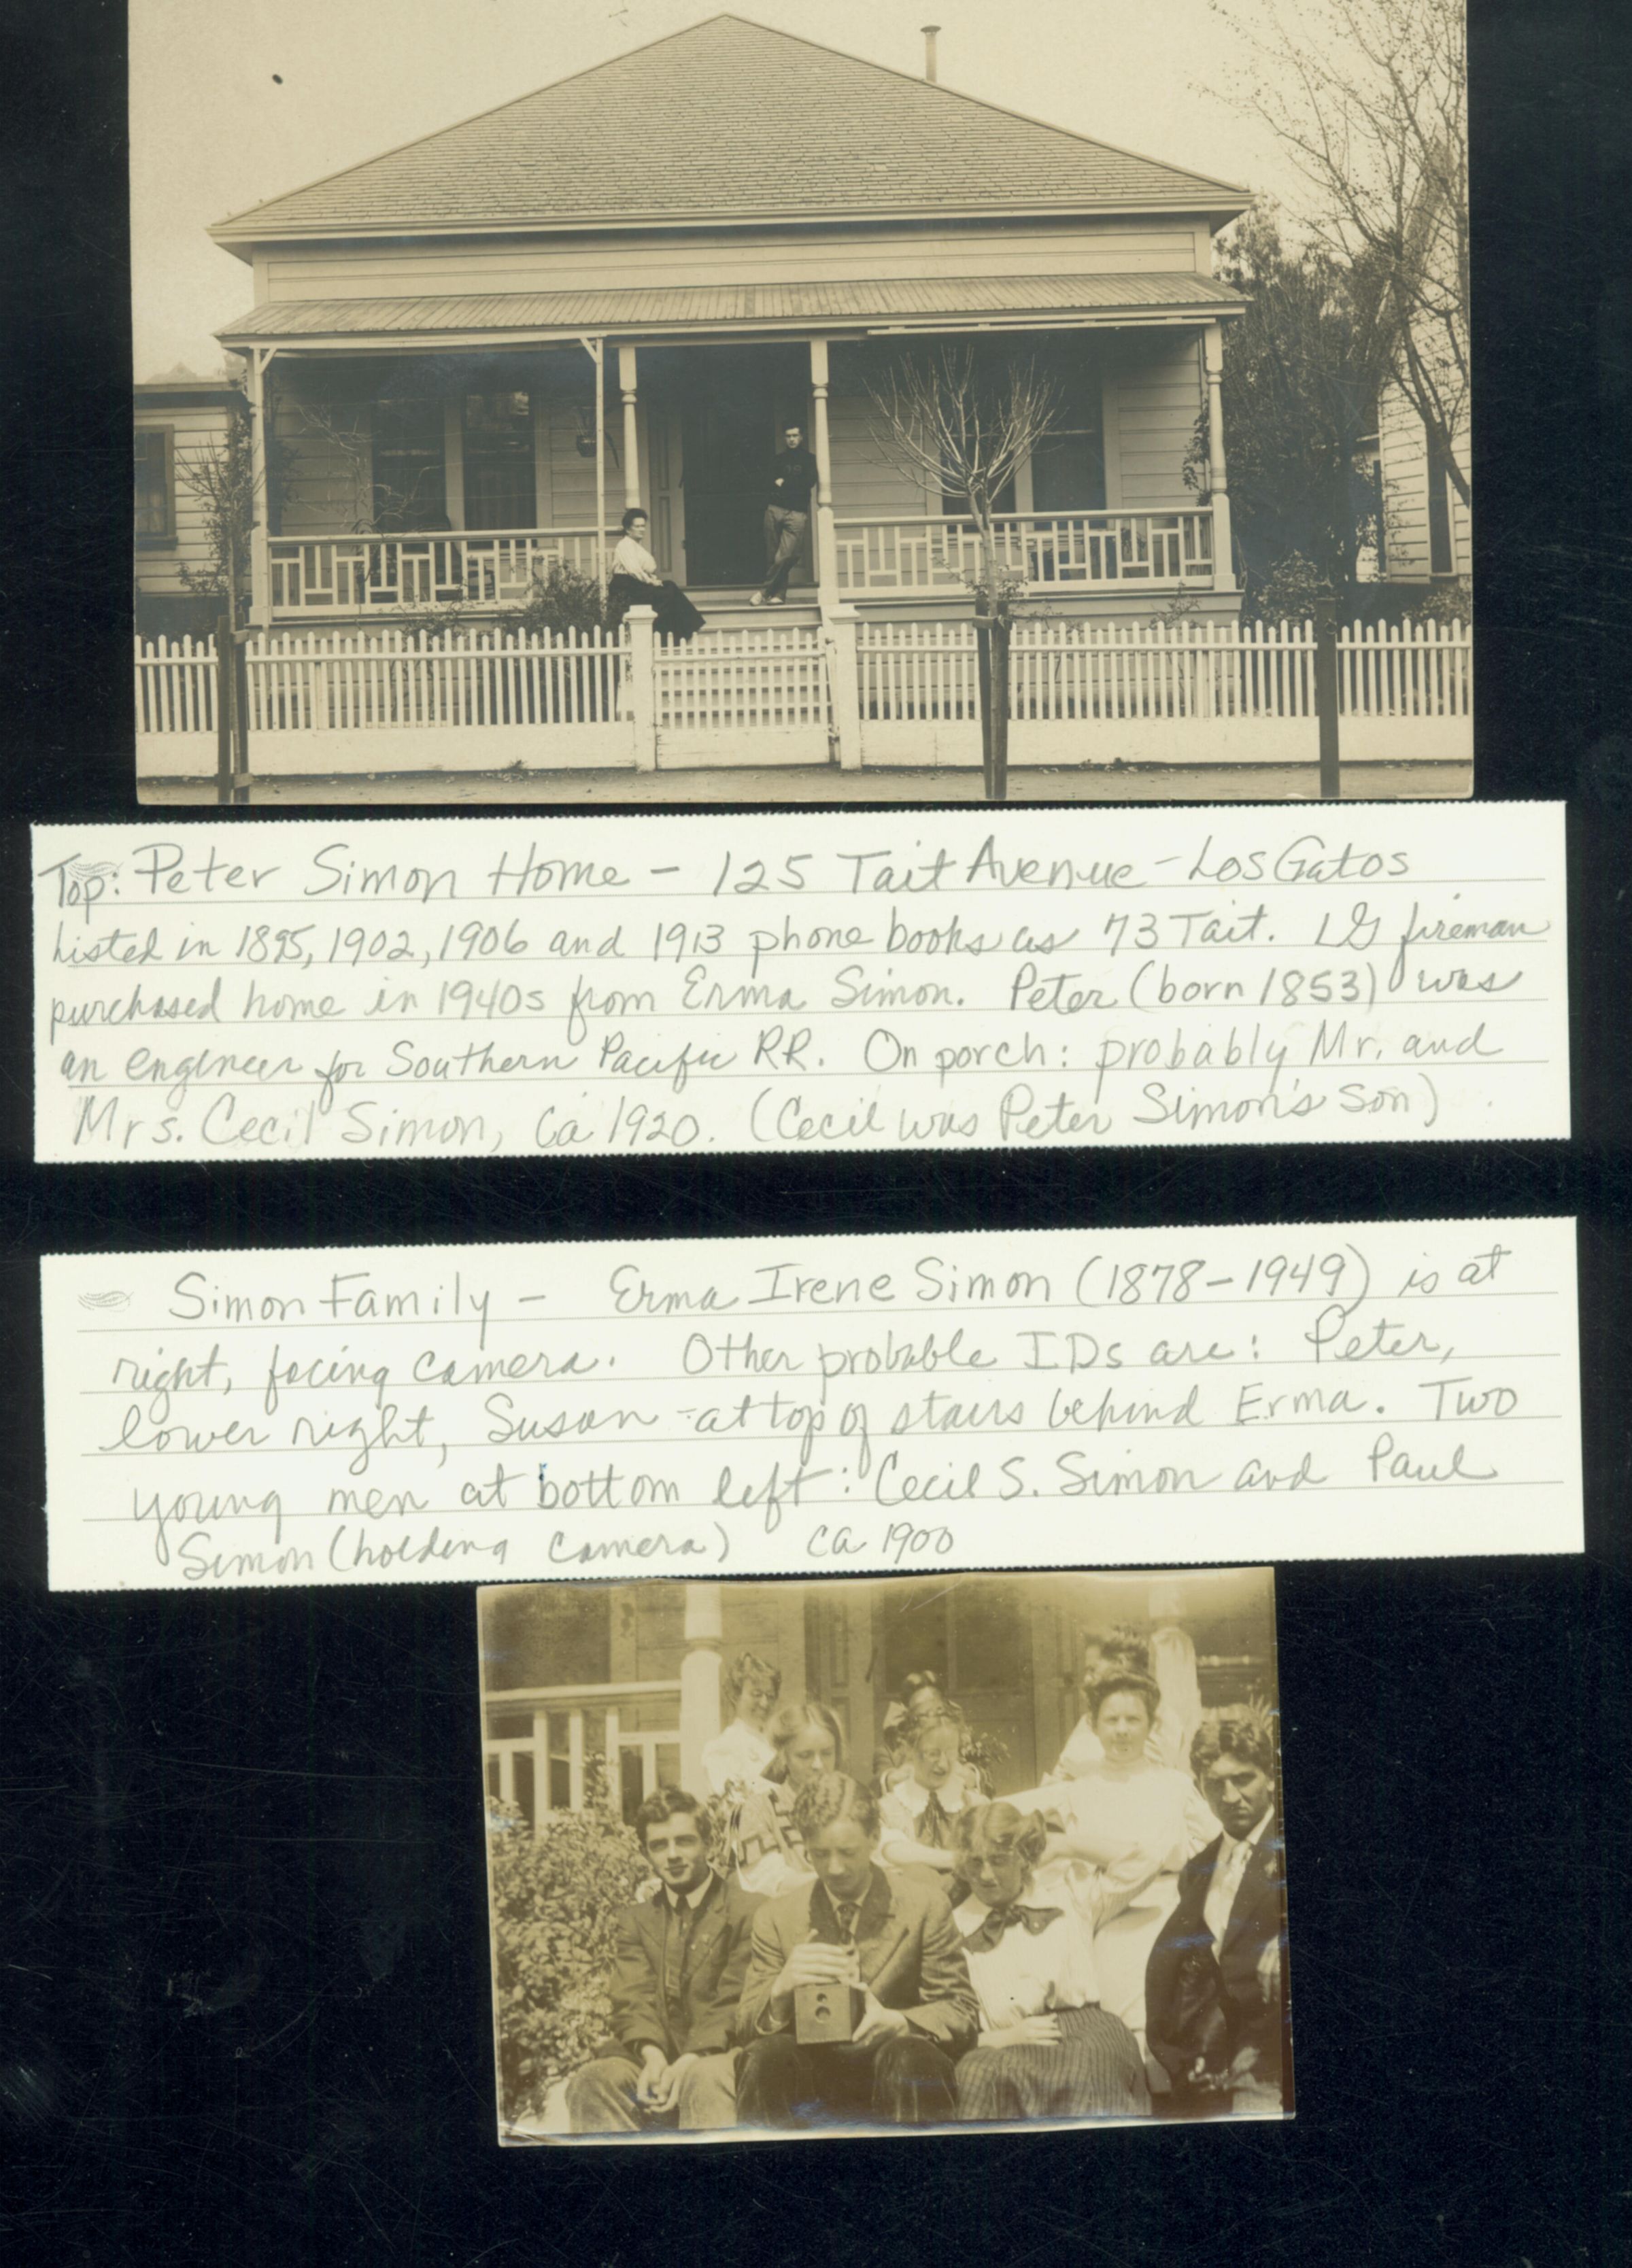 Top: Peter Simon Home - 125 Tait Avenue - Los Gatos
Listed in 1895, 1902, 1906 and 1913 phone books as 73 Tait. LG fireman
purchased home in 1940s from Erma Simon. Peter (born 1853) was
an engineer for Southern Pacific RR. On porch: probably Mr. and
Mrs. Cecil Simon, Ca 1920. (Cecil was Peter Simon's son)
Simon Family - Erma Irene Simon (1878-1949) is at
right, facing camera. Other probable IDs are: Peter,
lower right, Susan - at top of stairs behind Erma. Two
young men at bottom left: Cecil S. Simon and Paul
Simon (holding camera) Ca 1900